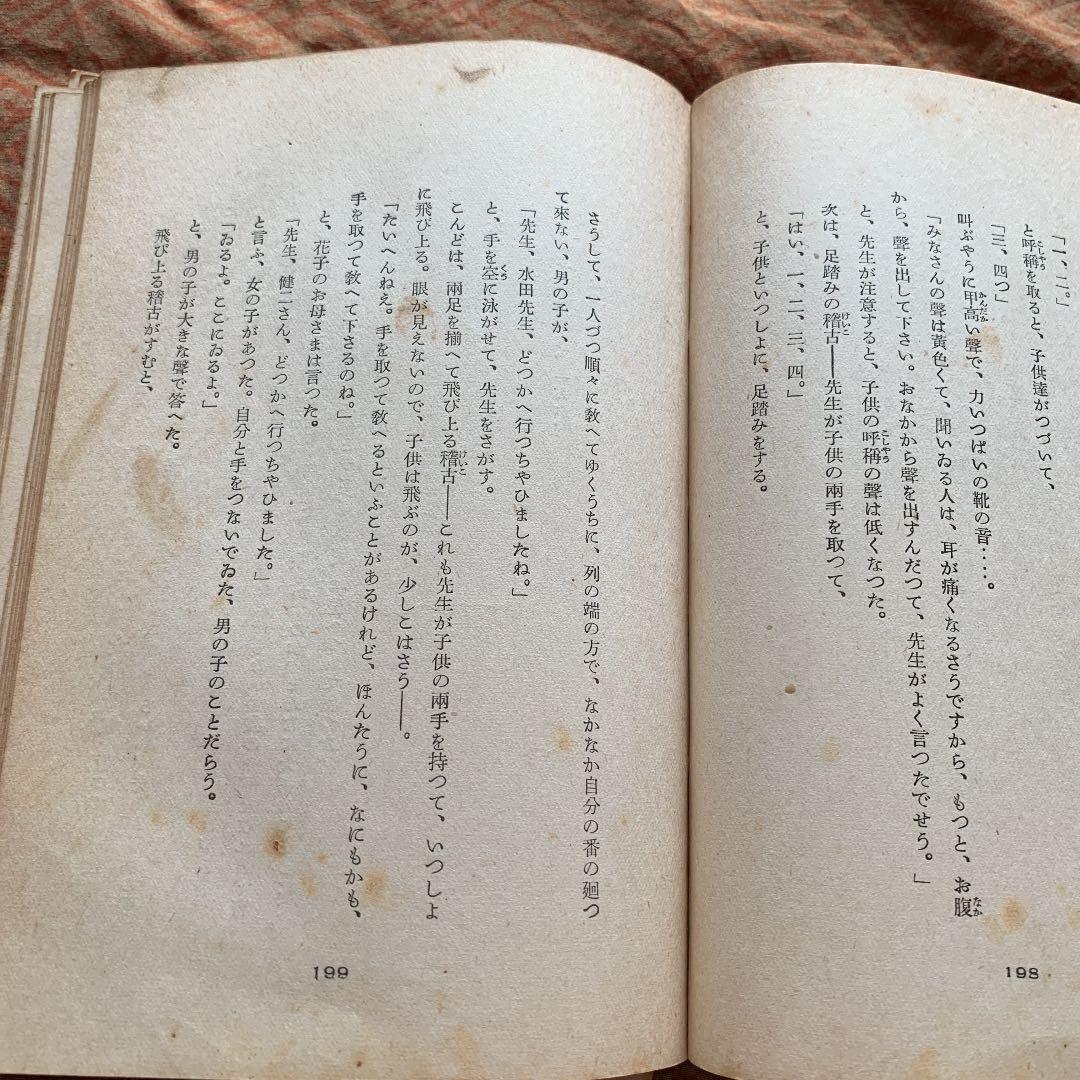 「一、二。」
と呼稱を取ると、子供達がつづいて、
こしやう
「三、四つ」
叫ぶやうに甲高い聲で、力いつぱいの靴の音‥‥。
かんだか
「みなさんの聲は黃色くて、聞いゐる人は、耳が痛くなるさうですから、もつと、お腹
なか
から、聲を出して下さい。おなかから聲を出すんだつて、先生がよく言つたでせう。」
と、先生が注意すると、子供の呼稱の聲は低くなつた。
こしやう
次は、足踏みの稽古――先生が子供の兩手を取つて、
けいこ
「はい、一、二、三、四。」
と、子供といつしよに、足踏みをする。
198
さうして、一人づつ順々に敎へてゆくうちに、列の端の方で、なかなか自分の番の廻つ
て來ない、男の子が、
「先生、水田先生、どつかへ行つちやひましたね。」
と、手を空に泳がせて、先生をさがす。
くう
こんどは、兩足を揃へて飛び上る稽古――これも先生が子供の兩手を持つて、いつしよ
けいこ
に飛び上る。眼が見えないので、子供は飛ぶのが、少しこはさう――。
「たいへんねえ。手を取つて敎へるといふことがあるけれど、ほんたうに、なにもかも、
手を取つて敎へて下さるのね。」
と、花子のお母さまは言つた。
「先生、健二さん、どつかへ行つちやひました。」
と言ふ、女の子があつた。自分と手をつないでゐた、男の子のことだらう。
「ゐるよ。ここにゐるよ。」
と、男の子が大きな聲で答へた。
飛び上る稽古がすむと、
199